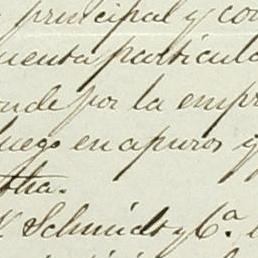 principal y con
uenta particula
onde por la empr
luego en apuros y
tha.
Schmidt y Ca.